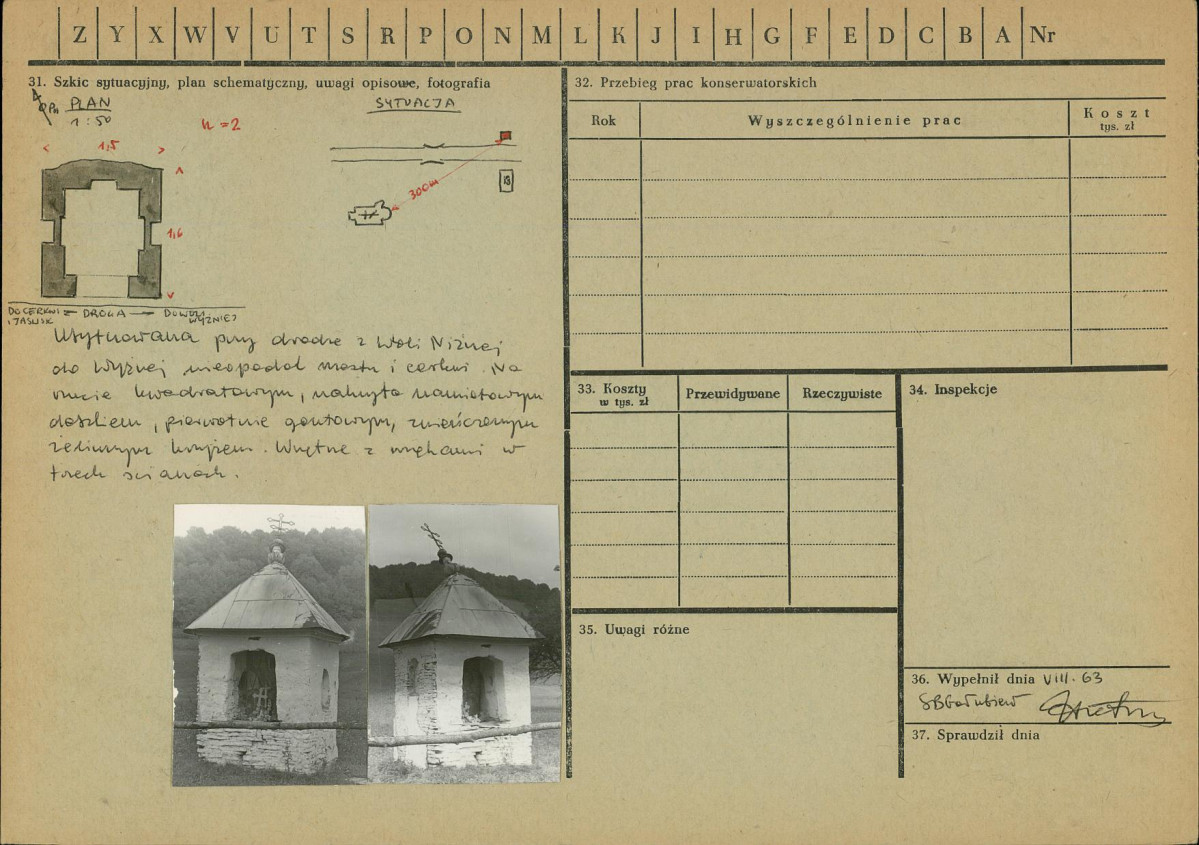 Z Y X W V U T S R P O N M L K J I H G F E D C B A Nr
31. Szkic sytuacyjny, plan schematyczny, uwagi opisowe, fotografia
PLAN
1:50
h = 2
SYTUACJA
1,5
1,6
300m
DO CERKWI
I JAŚLISK
DROGA
DO WOLI
WYŻNIEJ
Usytuowana przy drodze z Woli Niżnej
do Wyżnej nieopodal mostu i cerkwi. Na
rzucie kwadratowym, nakryta namiotowym
daszkiem, pierwotnie gontowym, zwieńczonym
żelaznym krzyżem. Wnętrze z wnękami w
trzech ścianach.
32. Przebieg prac konserwatorskich
Rok
Wyszczególnienie prac
Koszt
tys. zł
33. Koszty
w tys. zł
Przewidywane
Rzeczywiste
34. Inspekcje
35. Uwagi różne
36. Wypełnił dnia VIII. 63
37. Sprawdził dnia